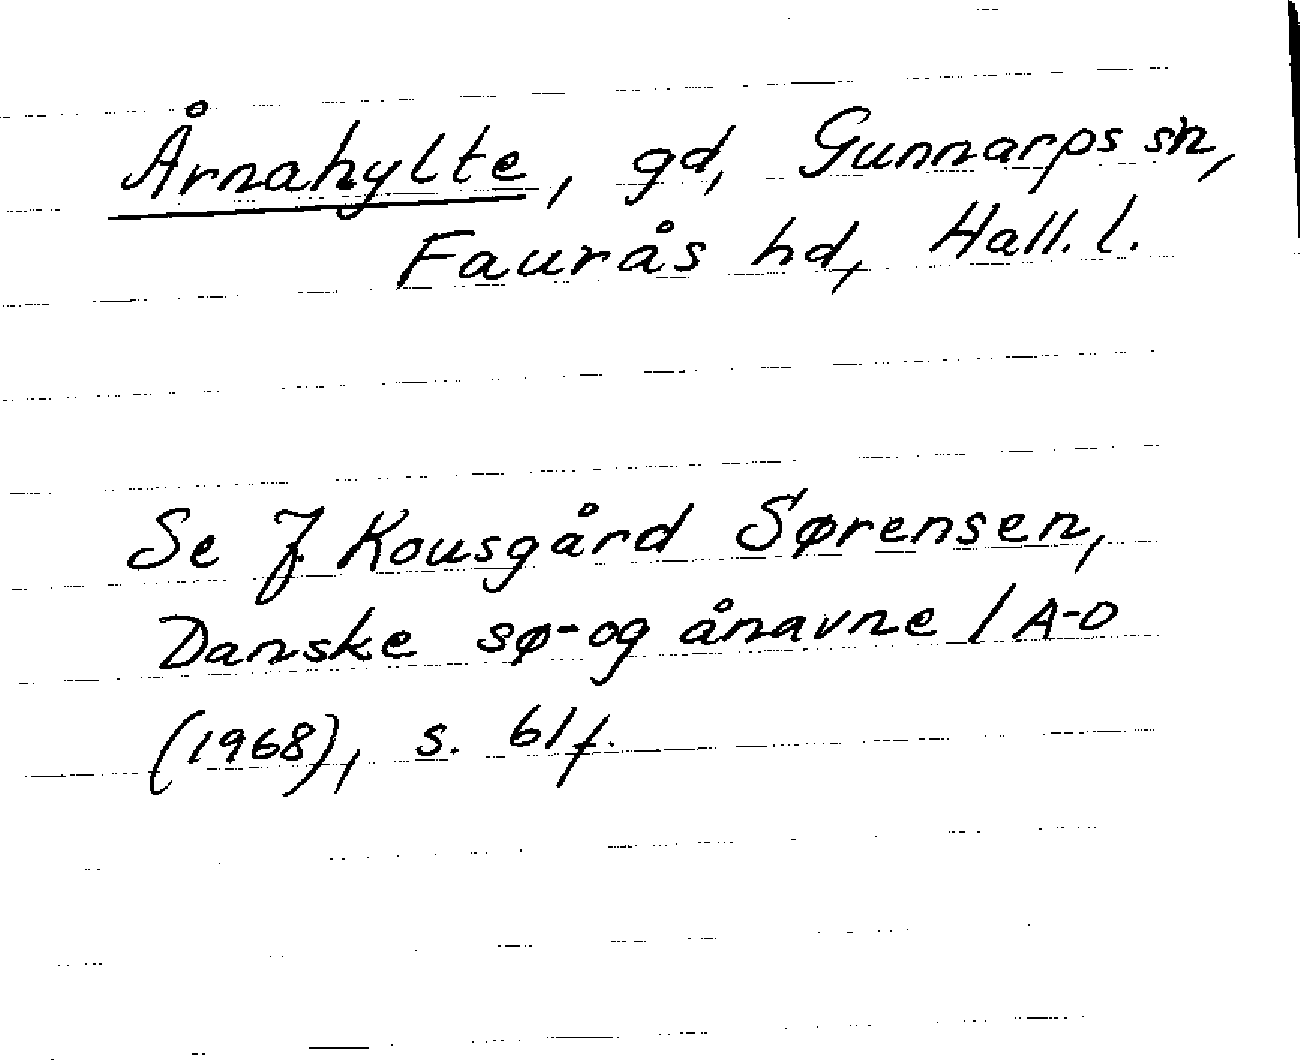 Årnahylte, gd, Gunnarps sn,
Faurås hd, Hall. l.
Se J. Kousgård Sørensen,
Danske sø- og ånavne 1 A-D
(1968), s. 61 f.